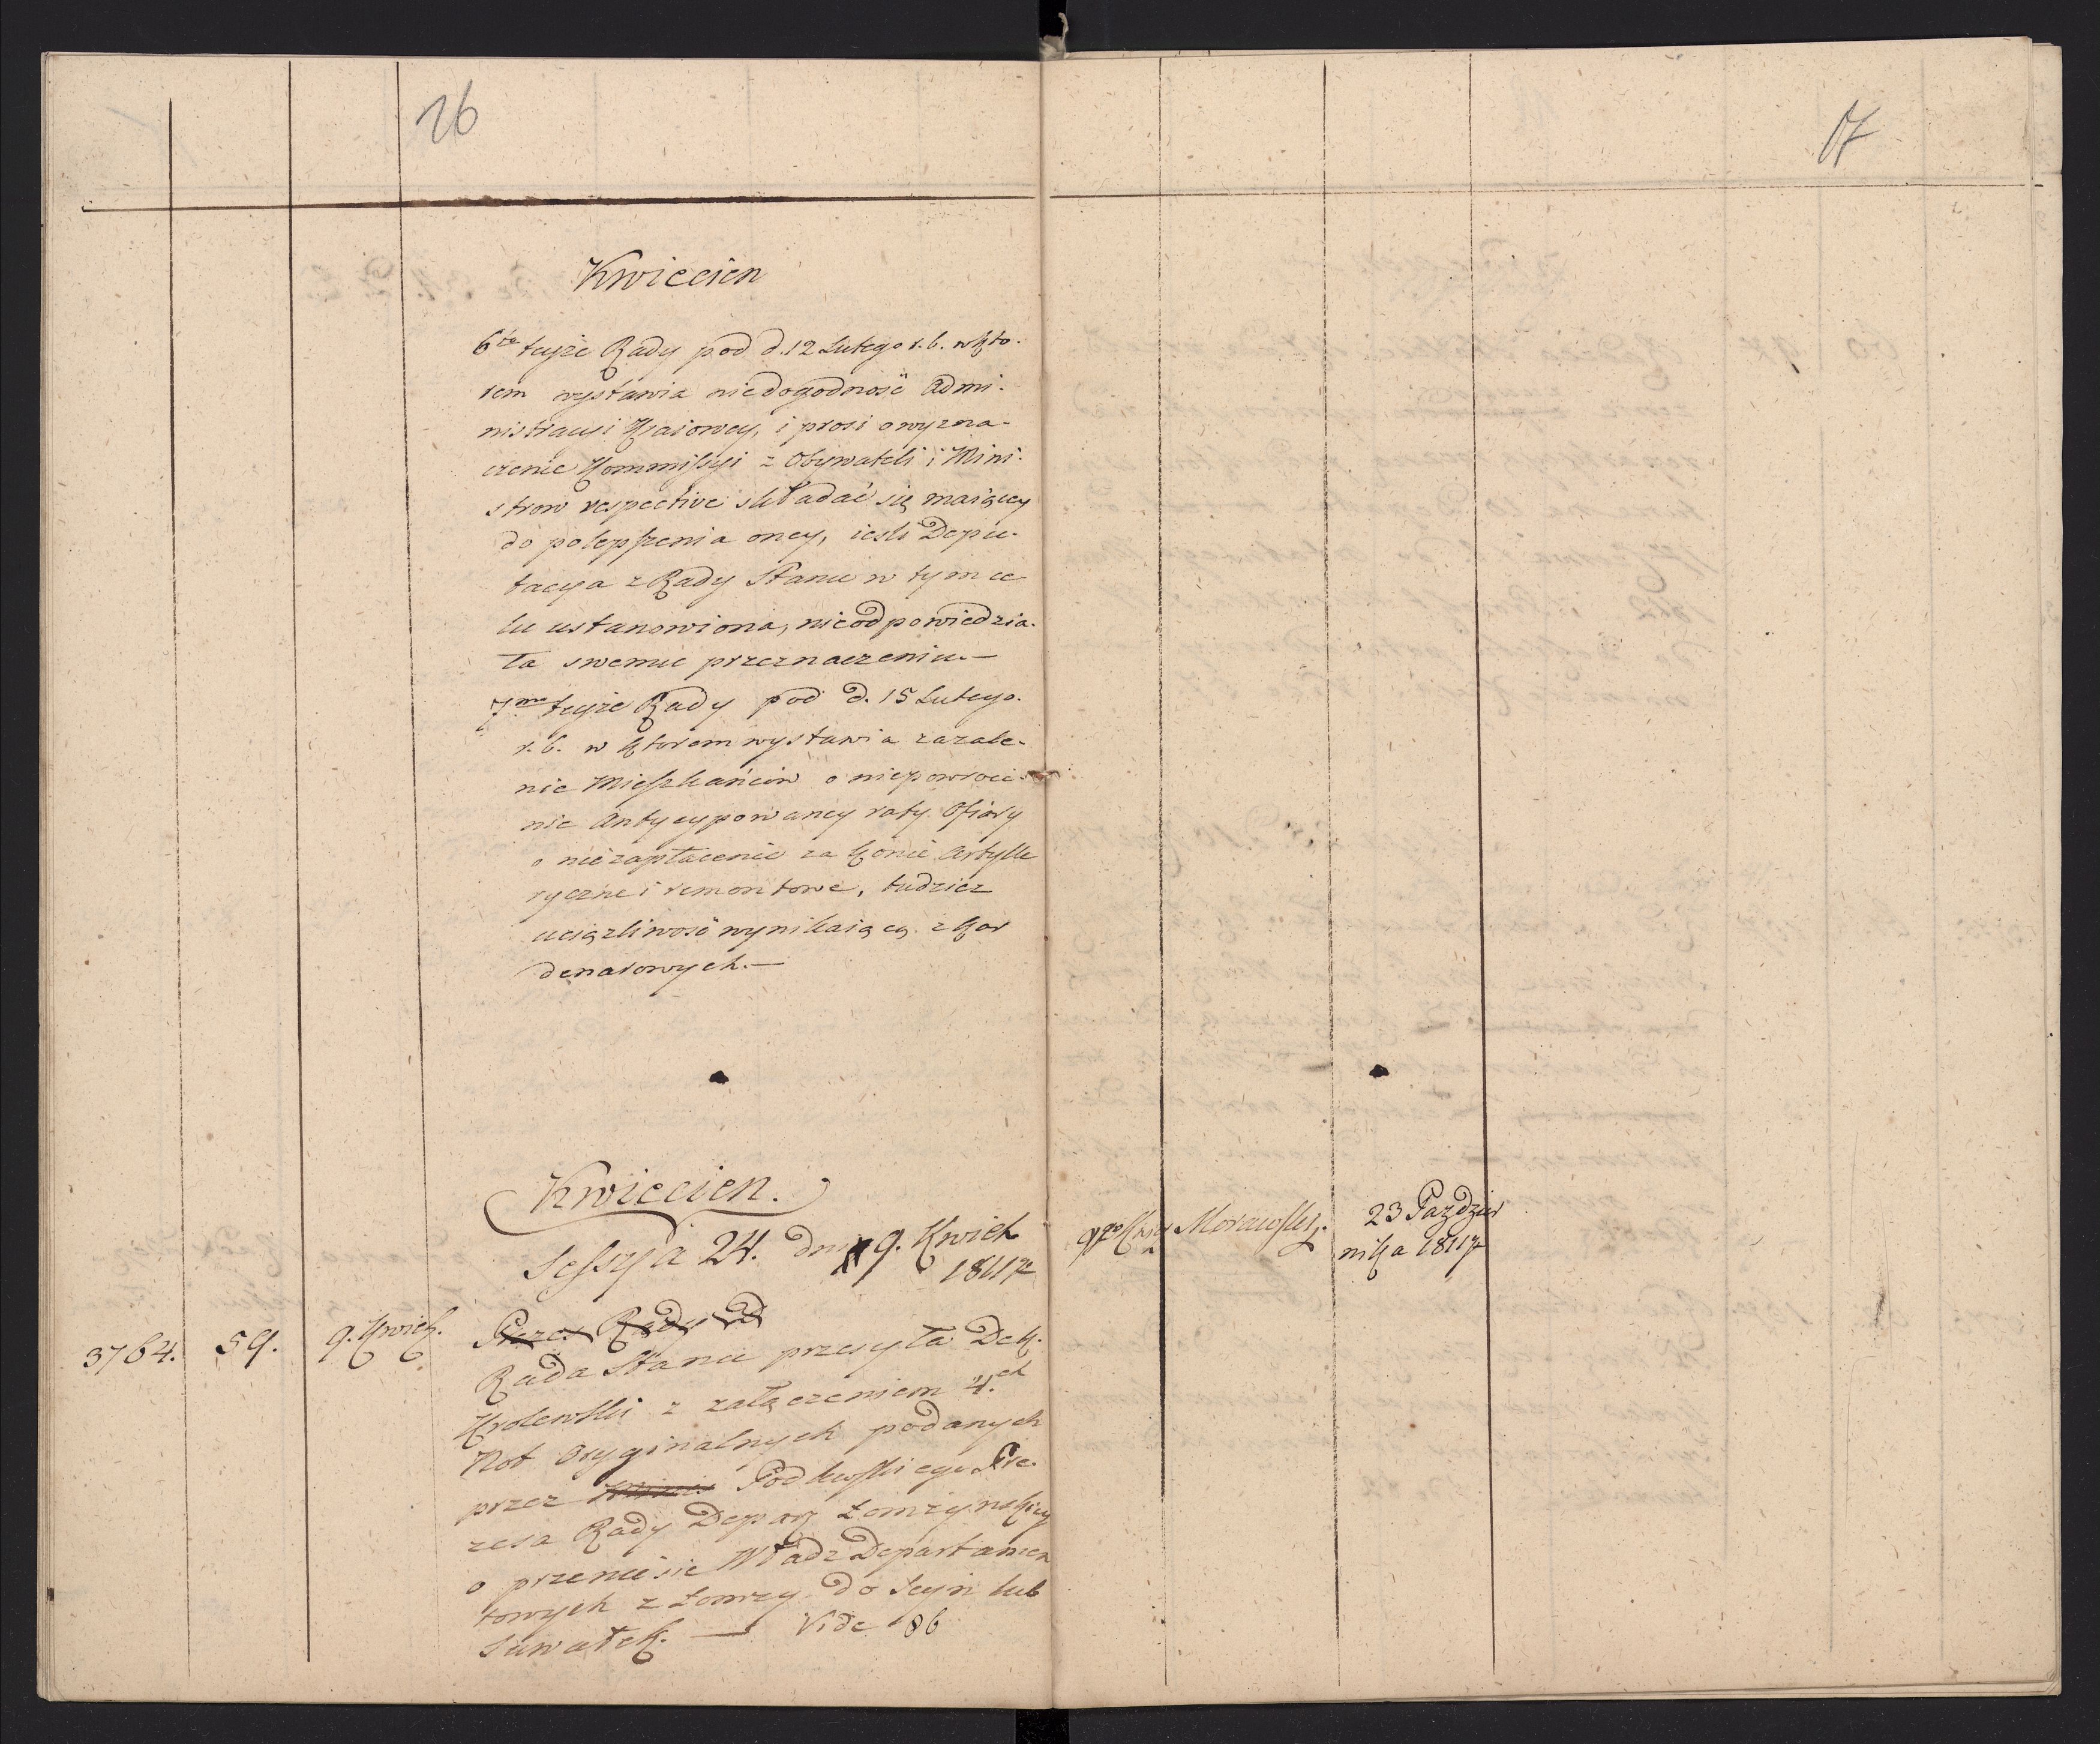 16
17
Kwiecień
6te teyże Rady pod d. 12 Lutego r. b. w kto-
rem wystawia niedogodność Admi-
nistracyi Kraiowey, i prosi o wyzna-
czenie Kommissyi z Obywateli i Mini-
strow respective składać się maiącey
do polepszenia oney, iesli Depu-
tacya z Rady Stanu w tym ce
lu ustanowiona, nieodpowiedzia-
ła swemu przeznaczeniu.—
7me teyże Rady pod d. 15 Lutego.
r. b. w ktorem wystawia zazale-
nie Mieszkańców o niepowroce-
nie Antycypowaney raty Ofiary
o niezapłacenie za konie Artylle
ryczne i remontowe, tudziez
uciązliwość wynikaiącą z kor
denasowych.—
Kwiecień.
Sessyja 24. dnia 9. Kwiet
1811 r
3764. 59. 9. Kwiet. Prezes Rady
Rada Stanu przesyła Dek.
Krolewski z załączeniem 4.ch
Not Oryginalnych podanych
przez Godlewskiego Pre-
zesa Rady Depar Łomżynskiey
o przeniesie Władz Departamen
towych z Łomzy do Seyn lub
Suwałek. — Vide 86
Morawski.
23 Pazdzier
nika 1811 r